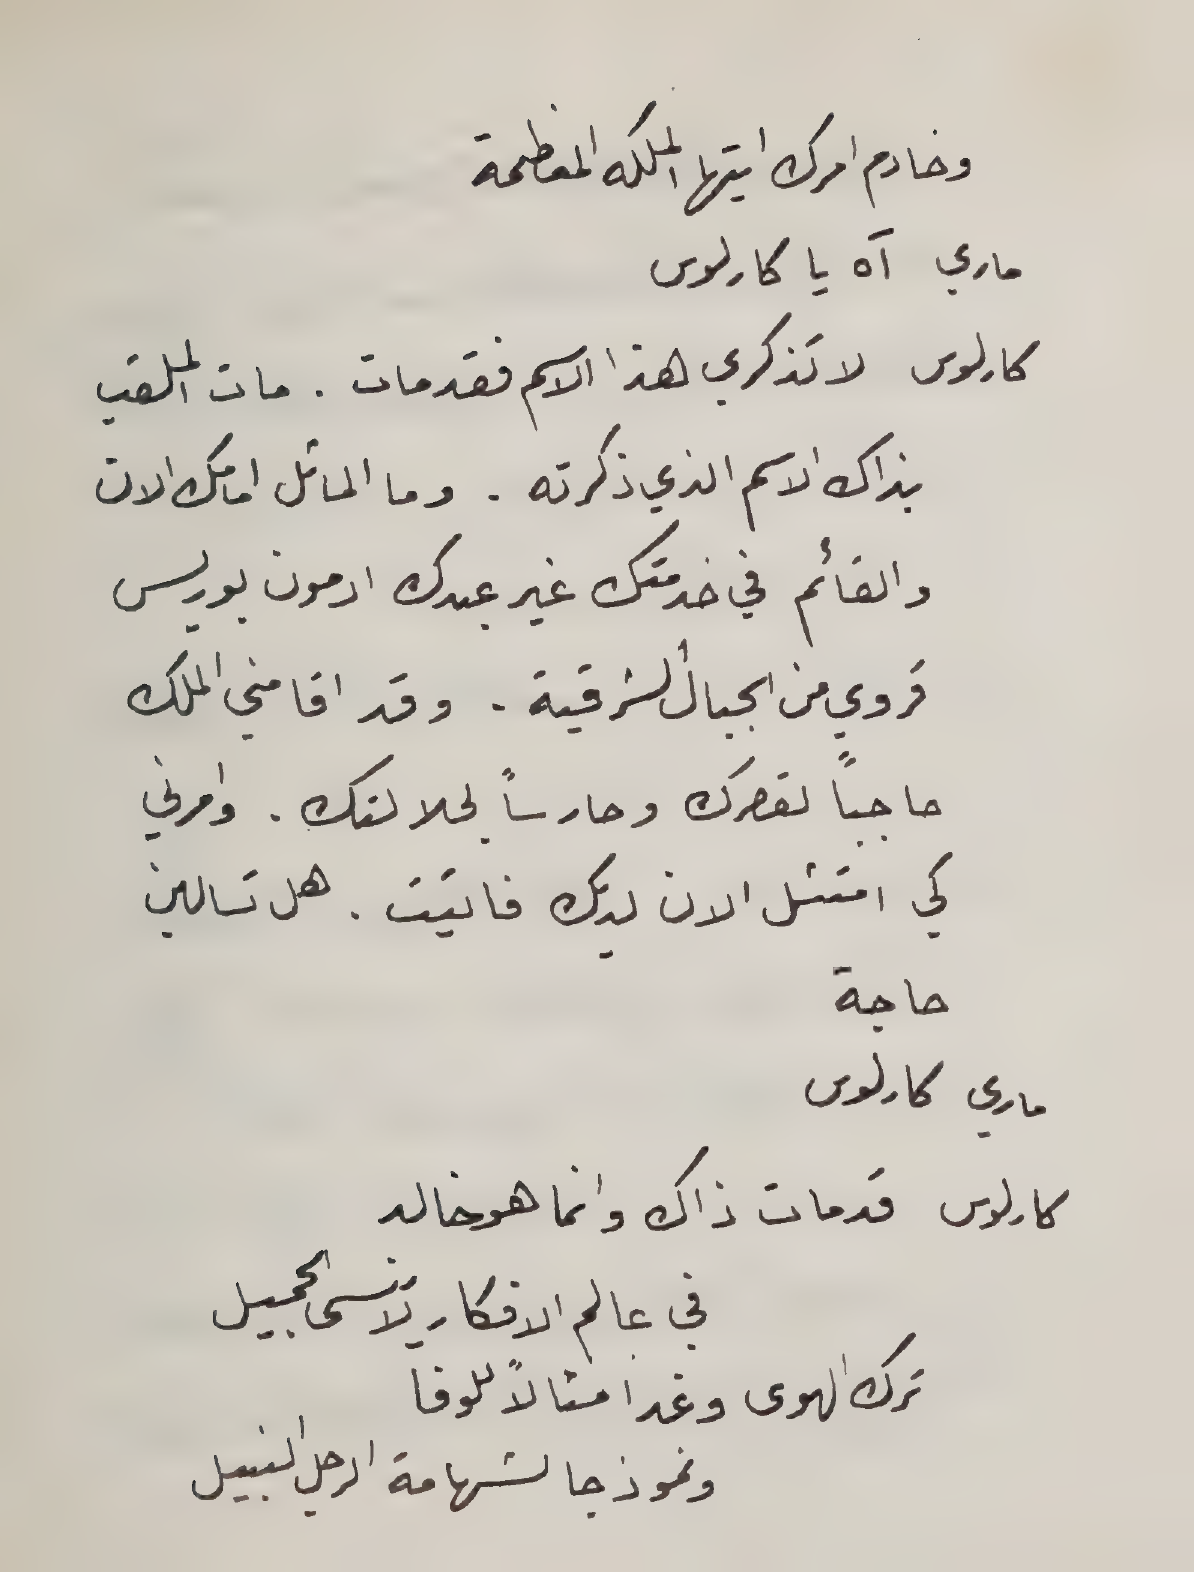 وخادم امرك ايتها الملكه المعظمة
ماري آه يا كارلوس
كارلوس لا تذكري هذا الاسم فقد مات . مات الملقب
بذاك الاسم الذي ذكرته . وما الماثل امامك الان
والقائم في خدمتك غير عبدك ادمون بوريس
قروي من الجبال الشرقية . وقد اقامني الملك
حاجباً لقصرك وحارساً لجلالتك . وامرني
كي امتثل الان لديك فاتيت . هل تسالين
حاجة
ماري كارلوس
كارلوس قد مات ذاك وانما هو خالد
في عالم الافكار لا ينسى الجميل
ترك الهوى وغدا مثالاً للوفا
ونموذجا لشهامة الرجل النبيل